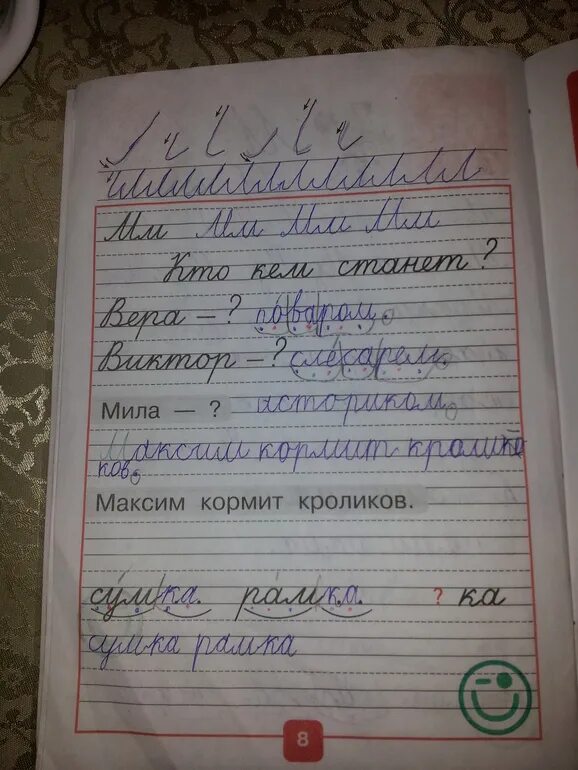 Мм Мм Мм Мм
Кто кем станет?
Вера — ? поваром.
Виктор — ? слесарем.
Мила — ? историком.
Максим кормит кролико
ков.
Максим кормит кроликов.
сумка. рамка. ? ка
сумка рамка
8